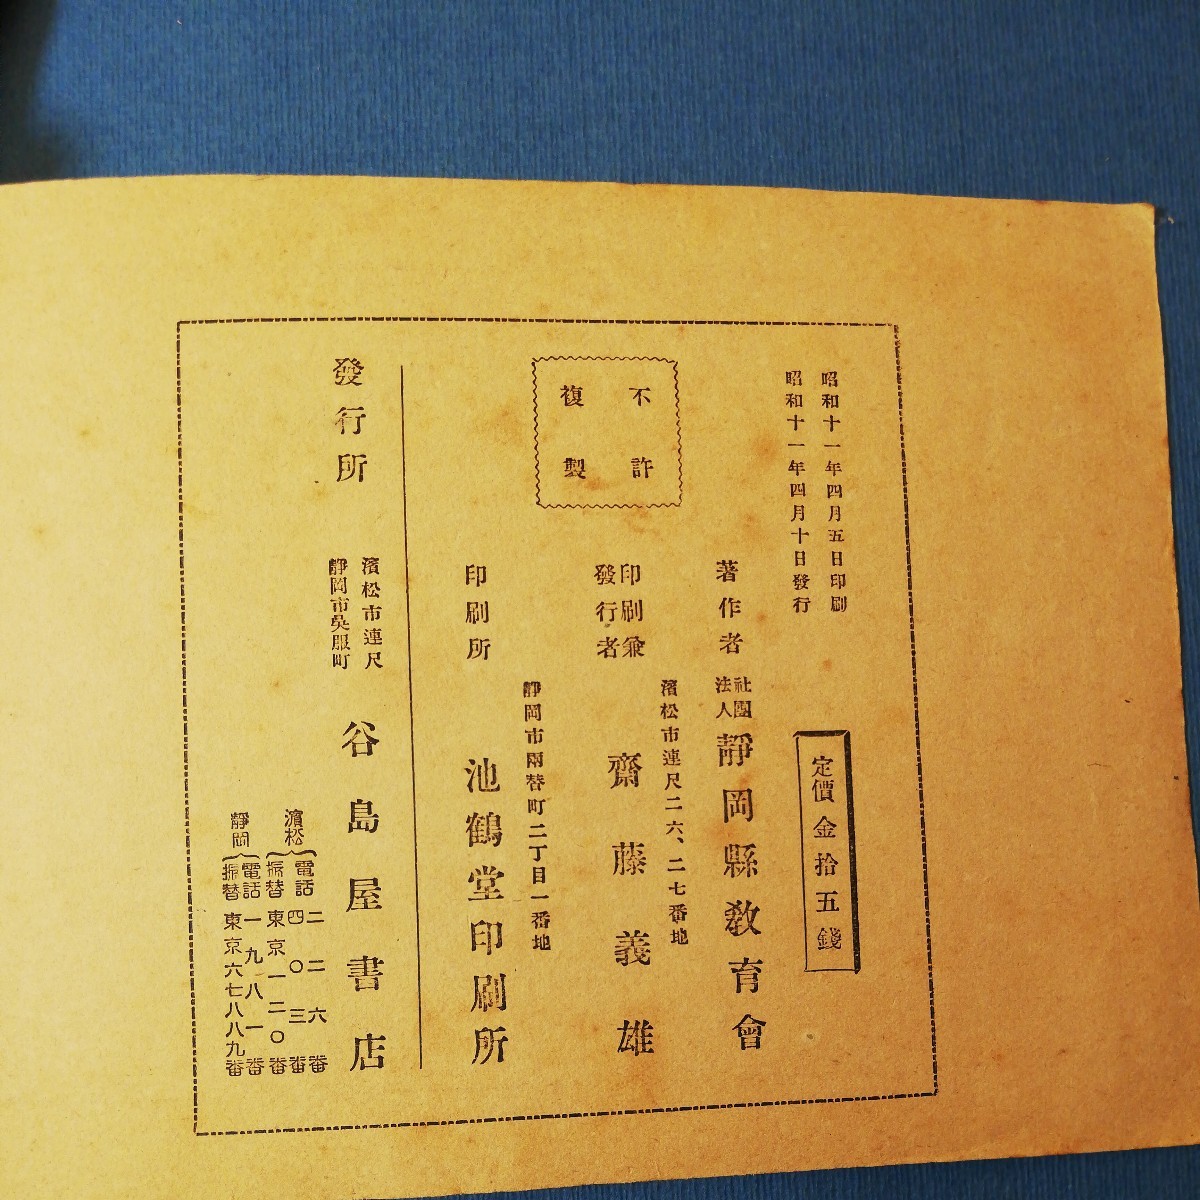 昭和十一年四月五日印刷
昭和十一年四月十日發行
定價金拾五錢
不許
複製
著作者
社團
法人
靜岡縣敎育會
濱松市連尺二六、二七番地
印刷兼
發行者
齋藤義雄
靜岡市兩替町二丁目一番地
印刷所
池鶴堂印刷所
發行所
濱松市連尺
靜岡市吳服町
谷島屋書店
濱松
電話
二二六番
四〇三番
振替東京一二〇番
靜岡
電話一九八一番
振替東京六七八八九番